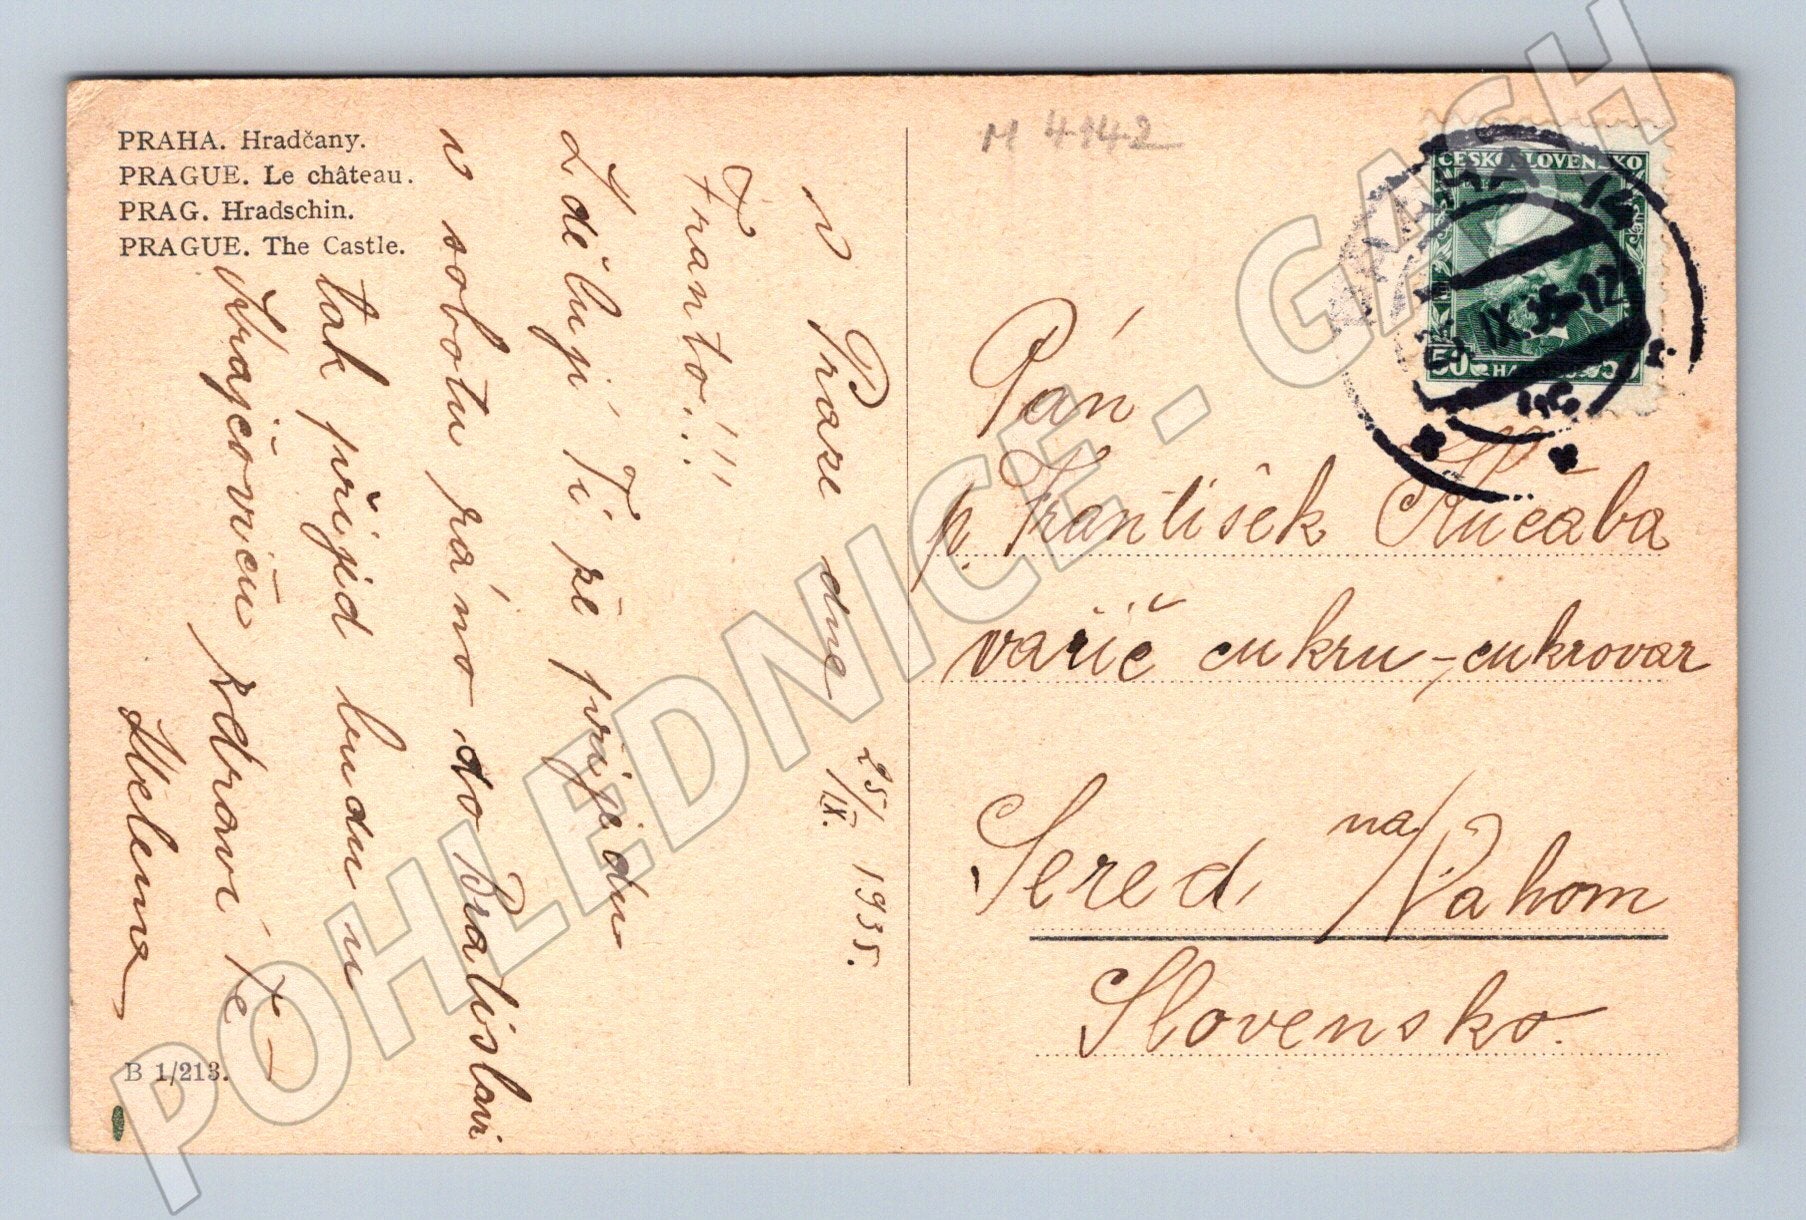 PRAHA. Hradčany.
PRAGUE. Le château.
PRAG. Hradschin.
PRAGUE. The Castle.
v Praze dne 25/IX. 1935.
Franto!!!
Zděluji Ti že přijedu
v sobotu ráno do Bratislavi
tak přijid budu u
Krajčovicu zdraví Tě
Helena
B 1/213.
M 4142
ČESKOSLOVENSKO
50
PRAHA
IX.35-12
Pán
p. František Kučaba
vařič cukru - cukrovar
Sered na/Vahom
Slovensko.
POHLEDNICE - GASH